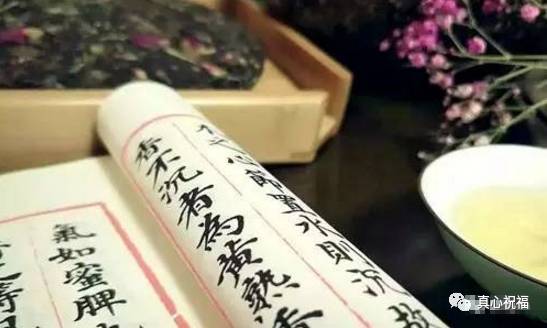 之心節置水則沉故
香不沉者為黃熟香
氣如蜜脾
真心祝福